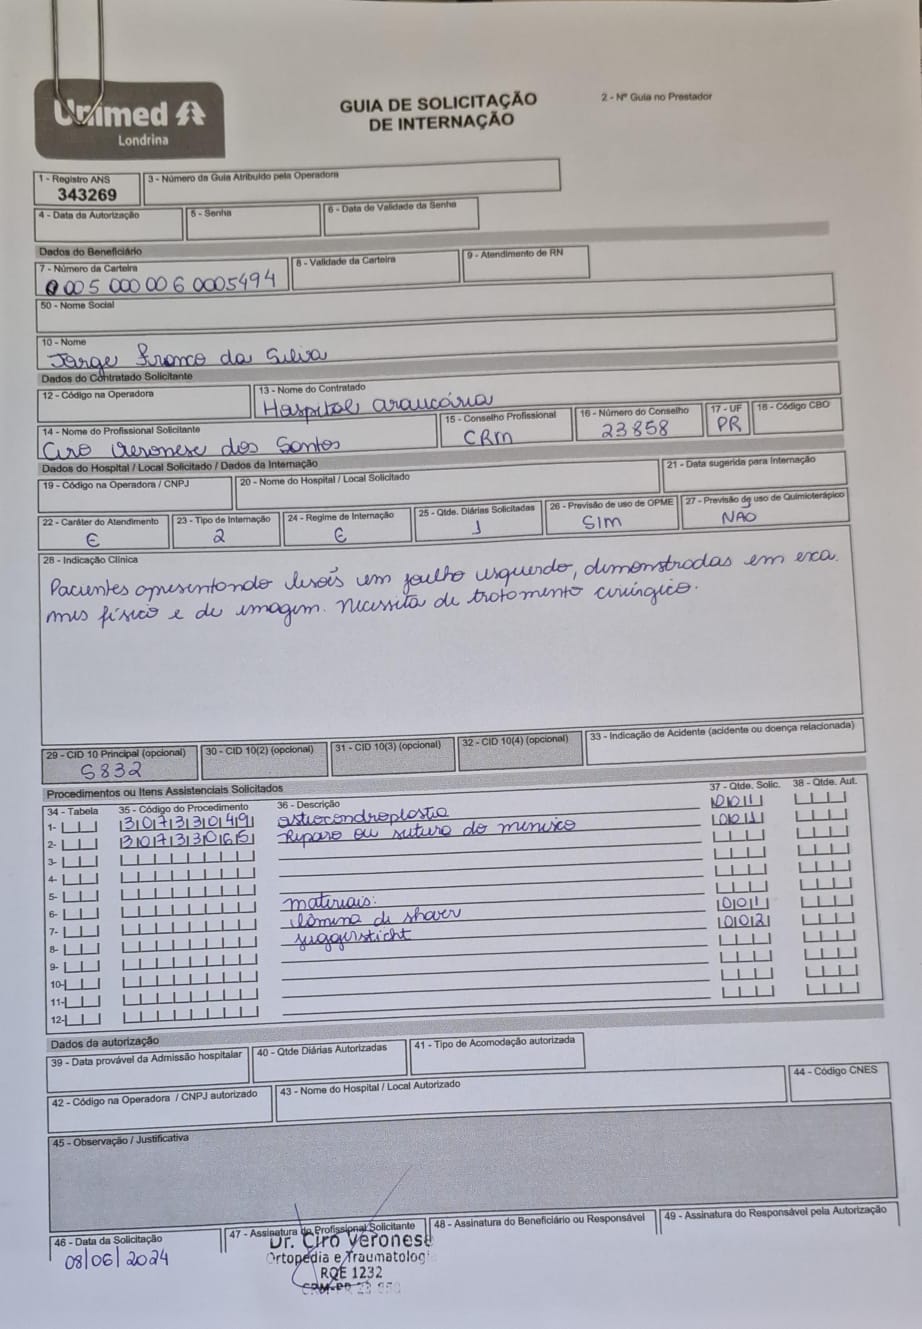 Unimed
Londrina
GUIA DE SOLICITAÇÃO
DE INTERNAÇÃO
2 - Nº Guia no Prestador
1 - Registro ANS
343269
3 - Número da Guia Atribuído pela Operadora
4 - Data da Autorização
5 - Senha
6 - Data de Validade da Senha
Dados do Beneficiário
7 - Número da Carteira
0 005 000 006 0005494
8 - Validade da Carteira
9 - Atendimento de RN
50 - Nome Social
10 - Nome
Jorge Franco da Silva
Dados do Contratado Solicitante
12 - Código na Operadora
13 - Nome do Contratado
Hospital araucária
14 - Nome do Profissional Solicitante
Ciro Veronese dos Santos
15 - Conselho Profissional
CRM
16 - Número do Conselho
23858
17 - UF
PR
18 - Código CBO
Dados do Hospital / Local Solicitado / Dados da Internação
19 - Código na Operadora / CNPJ
20 - Nome do Hospital / Local Solicitado
21 - Data sugerida para Internação
22 - Caráter do Atendimento
E
23 - Tipo de Internação
2
24 - Regime de Internação
E
25 - Qtde. Diárias Solicitadas
1
26 - Previsão de uso de OPME
SIM
27 - Previsão de uso de Quimioterápico
NAO
28 - Indicação Clínica
Pacientes apresentando lesões em joelho esquerdo, demonstradas em exa
mes físico e de imagem. Necessita de tratamento cirúrgico.
29 - CID 10 Principal (opcional)
S832
30 - CID 10(2) (opcional)
31 - CID 10(3) (opcional)
32 - CID 10(4) (opcional)
33 - Indicação de Acidente (acidente ou doença relacionada)
Procedimentos ou Itens Assistenciais Solicitados
34 - Tabela 35 - Código do Procedimento 36 - Descrição 37 - Qtde. Solic. 38 - Qtde. Aut.
1- 30733049 osteocondroplastia 001
2- 30733065 Reparo ou sutura do menisco 001
3-
4-
5-
6- materiais:
7- lâmina de shaver 001
8- juggersticht 002
9-
10-
11-
12-
Dados da autorização
39 - Data provável da Admissão hospitalar
40 - Qtde Diárias Autorizadas
41 - Tipo de Acomodação autorizada
42 - Código na Operadora / CNPJ autorizado
43 - Nome do Hospital / Local Autorizado
44 - Código CNES
45 - Observação / Justificativa
46 - Data da Solicitação
08/06/2024
47 - Assinatura do Profissional Solicitante
Dr. Ciro Veronese
Ortopedia e Traumatologi
RQE 1232
CRM-PR
48 - Assinatura do Beneficiário ou Responsável
49 - Assinatura do Responsável pela Autorização